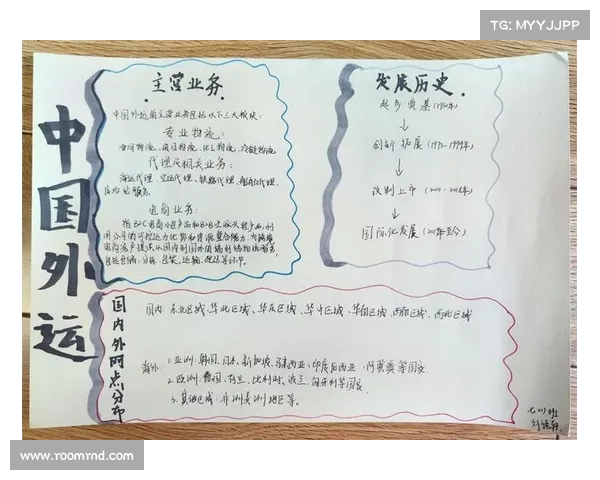 TG: MYYJJPP
中国外运
主营业务
中国外运的主营业务包括以下三大板块:
专业物流:
合同物流、项目物流、化工物流、冷链物流
代理及相关业务:
海运代理、空运代理、铁路代理、船舶代理、
库场站服务
电商业务:
包括仓储、分拣、包装、运输、配送等环节.
发展历史
起步奠基(1950年)
创新拓展
改制上市
国际化发展
国内外网点分布
国内: 东北区域、华北区域、华东区域、华中区域、华南区域、西南区域、西北区域
海外 1.亚洲:韩国、日本、新加坡、马来西亚、印度尼西亚、阿联酋等国家
2.欧洲:德国、荷兰、比利时、波兰、匈牙利等国家
3.其他区域:非洲美洲地区等。
www.roomrnd.com